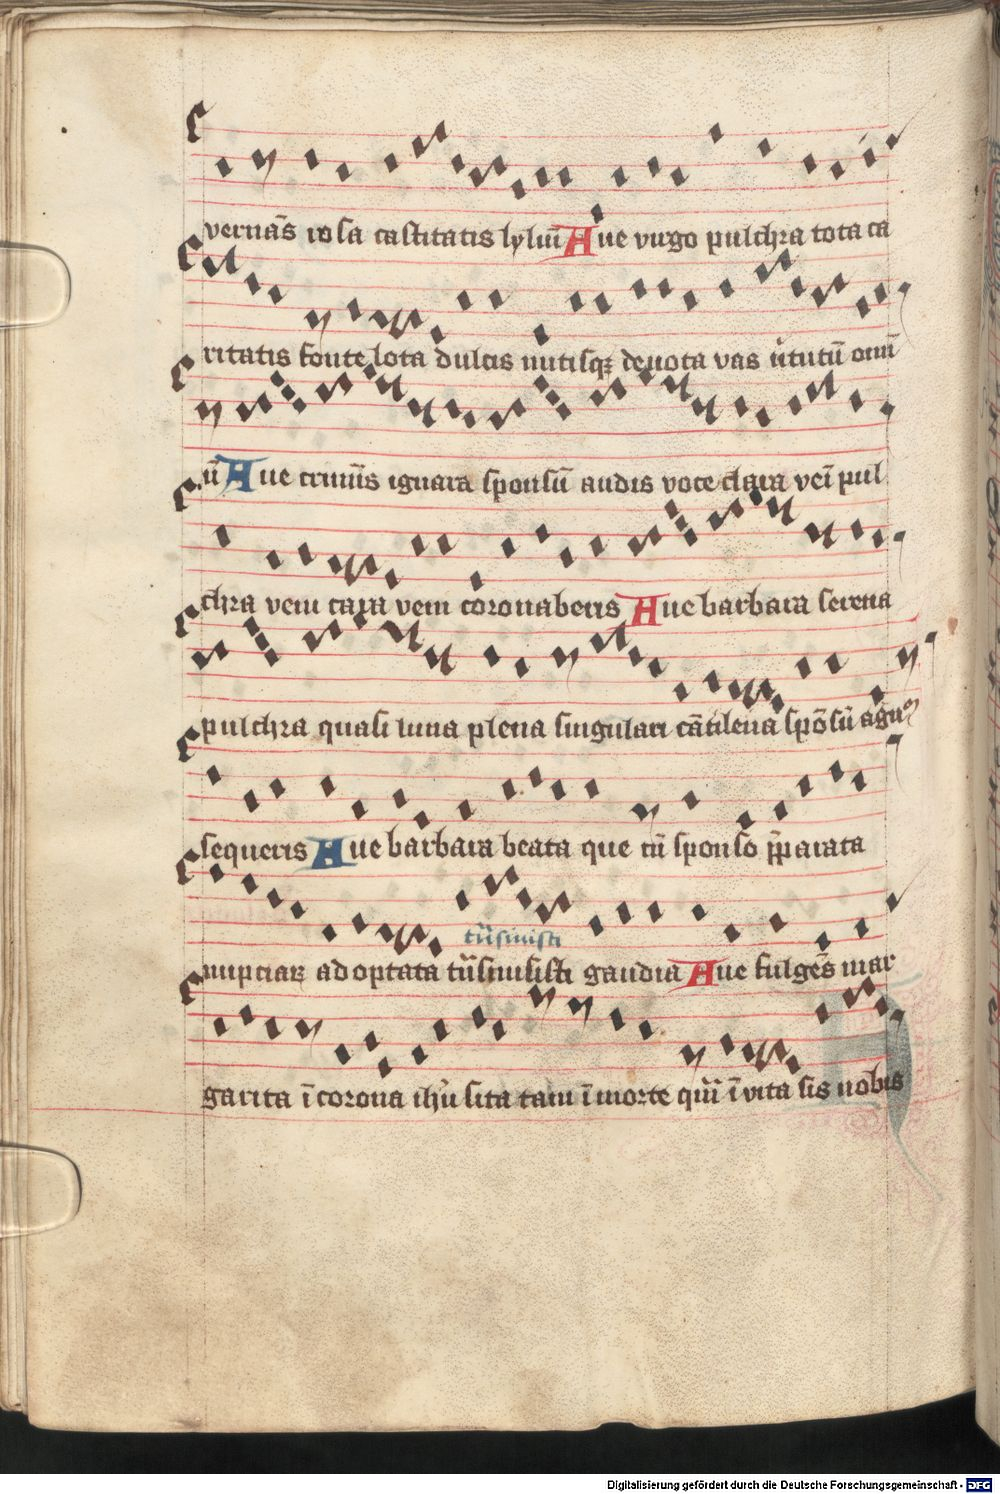 vernās rosa castitatis lyliū Aue virgo pulchra tota ca
ritatis fonte lota dulcis mitisqꝫ deuota vas v̓tutū omī
ū Aue crimīs ignara sponsū audis voce clara veī pul
chra veni cara veni coronaberis Aue barbara serena
pulchra quasi luna plena singulari cātilena spōsū agnꝰ
sequeris Aue barbara beata que cū sponso p̄parata
tūsiuisti
nupciaꝝ ad optata gaudia Aue fulgēs mar
garita ī corona ihū sita tam ī morte quī ī vita sis nobis
Digitalisierung gefördert durch die Deutsche Forschungsgemeinschaft - DFG